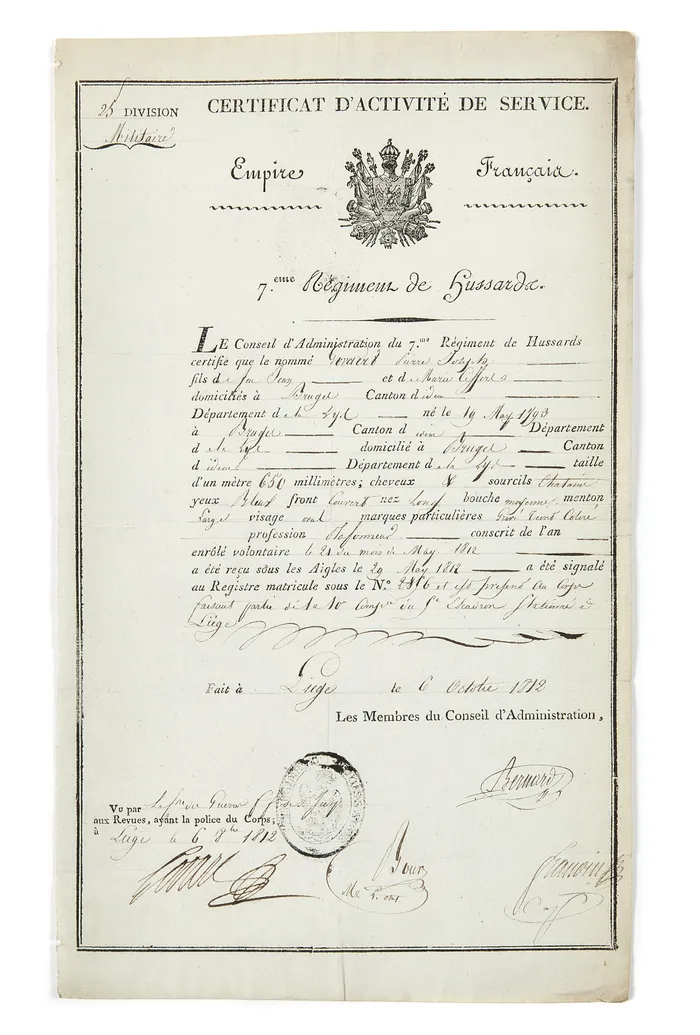 25 DIVISION
Militaire
CERTIFICAT D'ACTIVITÉ DE SERVICE.
Empire Français.
7.eme Régiment de Hussards.
LE Conseil d'Administration du 7.me Régiment de Hussards
certifie que le nommé Pierre Joseph
fils de feu Jean et de Marie
domiciliés à Bruges Canton d idem
Département de la Lys né le 19 May 1793
à Bruges Canton d idem Département
d e la Lys domicilié à Bruges Canton
d idem Département de la Lys taille
d'un mètre 650 millimètres; cheveux & sourcils Chatains
yeux Bleus front Couvert nez Long bouche moyenne menton
Large visage oval marques particulières Gravé Teint Coloré
profession conscrit de l'an
enrôlé volontaire le 21 du mois de May 1812
a été reçu sous les Aigles le 29 May 1812 a été signalé
au Registre matricule sous le N.o et est présent au Corps
faisant partie de la 10e Comp.ie du Escadron Stationné à
Liège
Fait à Liège le 6 Octobre 1812
Les Membres du Conseil d'Administration,
Bernard
Vu par
aux Revues, ayant la police du Corps;
à Liège le 6 8bre 1812